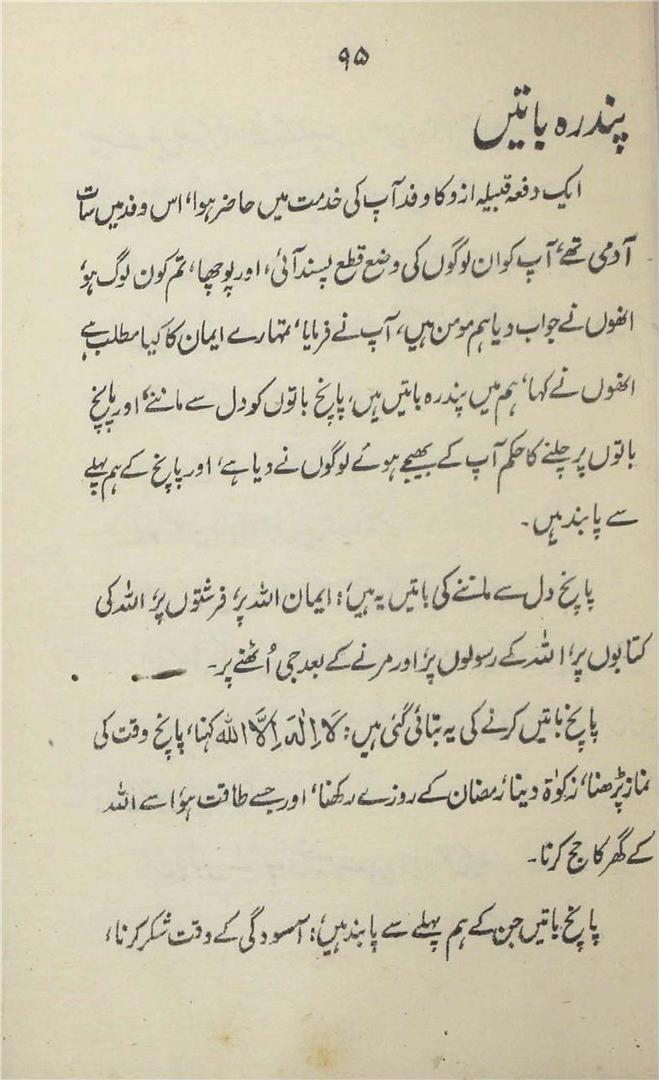 ۹۵
پندرہ باتیں
ایک دفعہ قبیلہ ازد کا وفد آپ کی خدمت میں حاضر ہوا، اس وفد میں سات
آدمی تھے، آپ کو ان لوگوں کی وضع قطع پسند آئی، اور پوچھا، تم کون لوگ ہو؟
انھوں نے جواب دیا ہم مومن ہیں، آپ نے فرمایا، تمہارے ایمان کا کیا مطلب ہے
انھوں نے کہا، ہم میں پندرہ باتیں ہیں، پانچ باتوں کو دل سے ماننے، اور پانچ
باتوں پر چلنے کا حکم آپ کے بھیجے ہوئے لوگوں نے دیا ہے، اور پانچ کے ہم پہلے
سے پابند ہیں۔
پانچ دل سے ماننے کی باتیں یہ ہیں: ایمان اللہ پر، فرشتوں پر، اللہ کی
کتابوں پر، اللہ کے رسولوں پر، اور مرنے کے بعد جی اُٹھنے پر۔
پانچ باتیں کرنے کی یہ بتائی گئی ہیں: لَا اِلٰہَ اِلَّا اللہ کہنا، پانچ وقت کی
نماز پڑھنا، زکوٰۃ دینا، رمضان کے روزے رکھنا، اور جسے طاقت ہو، اسے اللہ
کے گھر کا حج کرنا۔
پانچ باتیں جن کے ہم پہلے سے پابند ہیں: آسودگی کے وقت شکر کرنا،